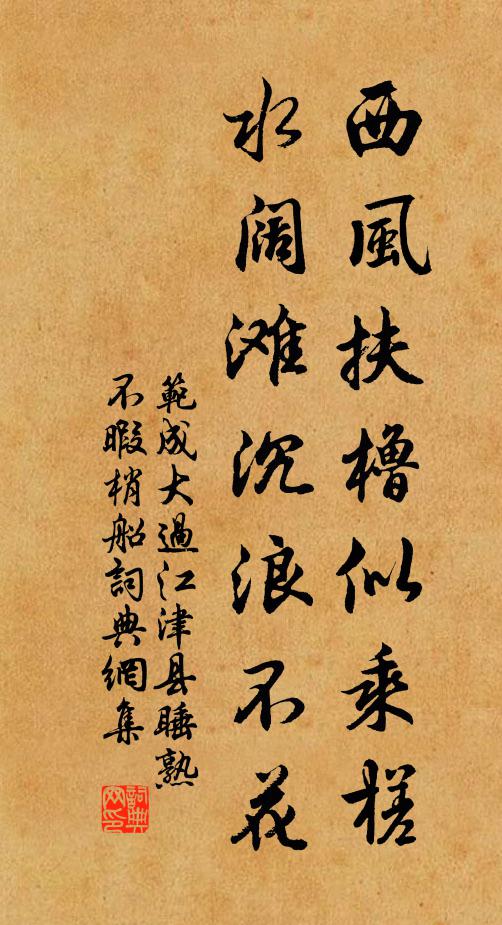 西風扶櫓似乘槎
水阔滩沉浪不花
範成大過江津县睡熟
不暇梢船詞典網集
詞典网印